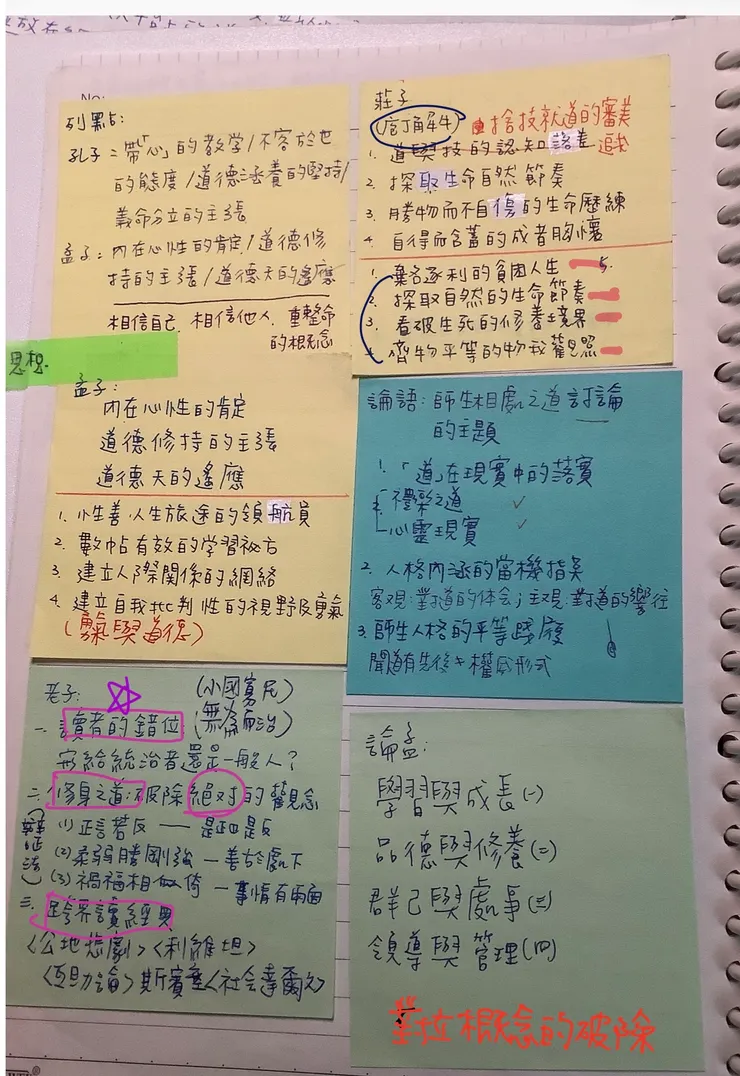 列點:
孔子:帶「心」的教学/不容於世
的態度/道德涵養的堅持/
義命分立的主張
孟子:內在心性的肯定/道德修
持的主張/道德天的遙應
相信自己、相信他人、重整命
的概念
思想.
孟子:
內在心性的肯定
道德修持的主張
道德天的遙應
1. 性善人生旅途的領航員
2. 數帖有效的学習祕方
3. 建立人際關係的網絡
4. 建立自我批判性的視野及勇氣
(勇氣與道德)
老子:
(小國寡民)
(無為而治)
一、讀者的錯位:
寫給統治者還是一般人?
二、修身之道:破除絕对的觀念
(辯証法)
(1) 正言若反 — 是也是反
(2) 柔弱勝剛強 — 善於處下
(3) 禍福相倚 — 事情有兩面
三、跨界讀經典
〈公地悲劇〉〈利維坦〉
〈互助論〉斯賓塞〈社會達爾文〉
莊子
(庖丁解牛) 捨技就道的審美
1. 道與技的認知落差 追我
2. 探取生命自然節奏
3. 勝物而不自傷的生命歷練
4. 自得而含蓄的成者胸懷
1. 棄名逐利的貧困人生 5.
2. 探取自然的生命節奏
3. 看破生死的修養境界
4. 齊物平等的物我觀照
論語:師生相處之道討論
的主題
1.「道」在現實中的落實
禮樂之道 ✓
心靈現實 ✓
2. 人格內涵的當機指矣
客观:對道的体会;主观:對道的嚮往
3. 師生人格的平等踐履
聞道有先後 權威形式
論孟:
學習與成長(一)
品德與修養(二)
群己與處事(三)
領導與管理(四)
對立概念的破除